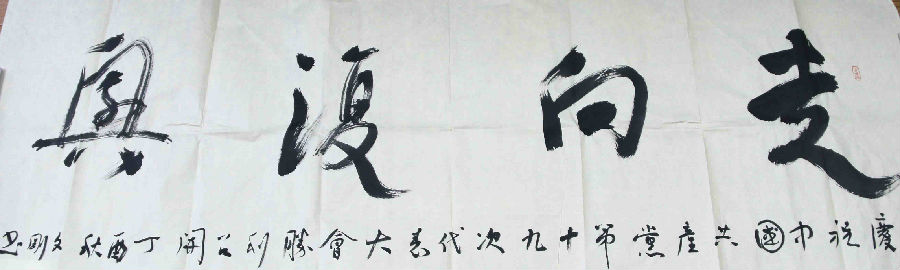 走向復興
慶祝中國共產黨第十九次代表大會勝利召開丁酉秋文明書